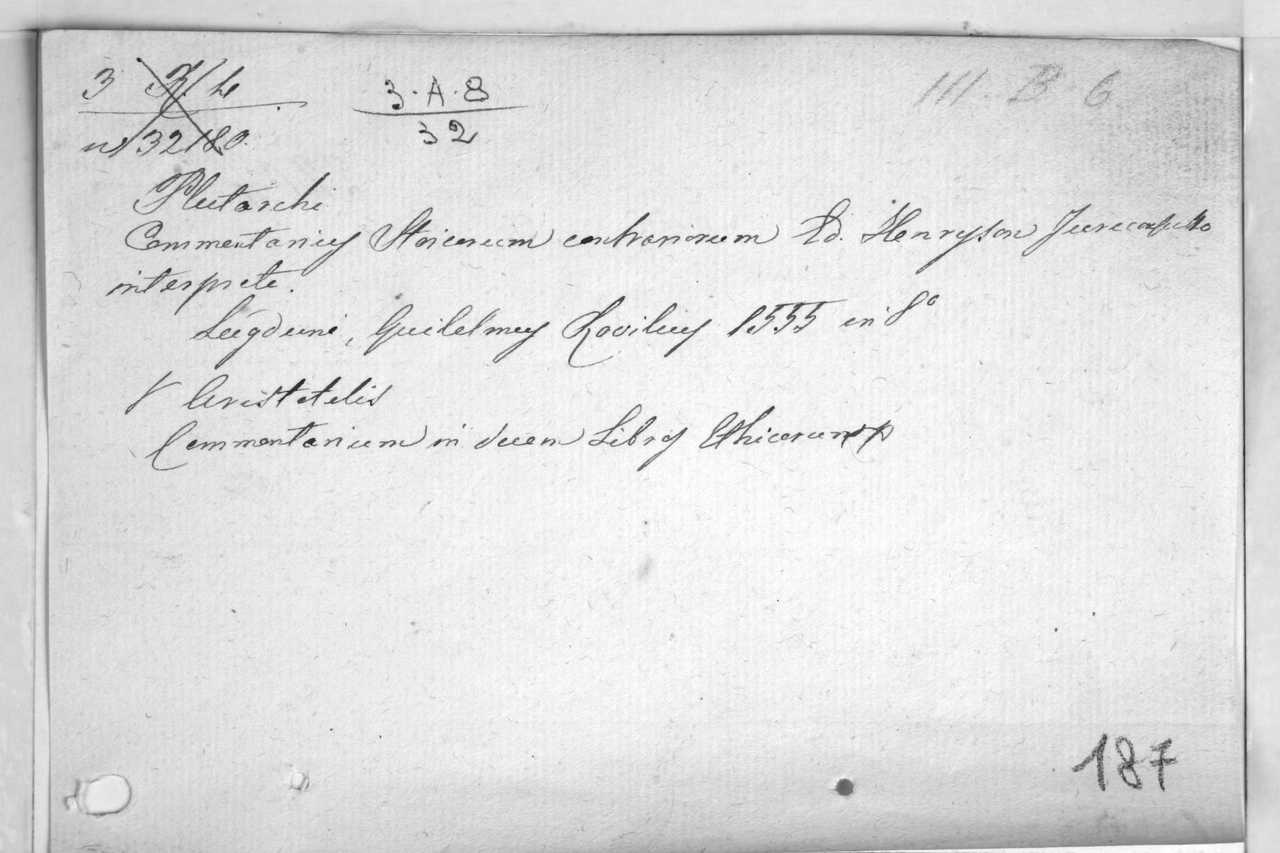 3
3·A·8
32
III B 6
Plutarchi
Commentarius Stoicorum contrariorum Ed. Henryson Jureconsulto
interprete.
Lugduni, Guilelmus Rovilius 1555 in 8º
Aristotelis
Commentarium in decem Libros Ethicorum
187